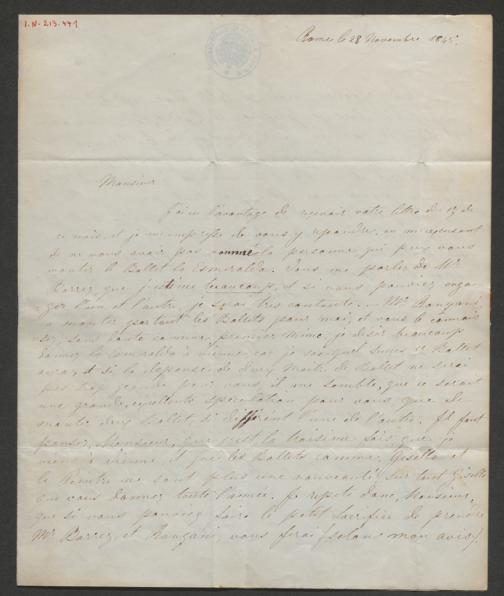 I.N. 213.471
Rome le 28 Novembre 1845.
Monsieur
J'ai eu l'avantage de recevoir votre lettre du 17 de
ce mois, et je m'empresse de vous y repondre, en m'excusant
de ne vous avoir pas nommé la personne, qui peux vous
monter le Ballet la Esmeralda. Vous me parlez de Mr
Borrez, que j'estime beaucoup, et si vous pouviez enga-
ger l'un et l'autre, je serai tres contente. Mr Rongiani,
a monter partout les Ballets pour moi, et vous le connais-
sez, sans doute comme premier Mime, je desir beaucoup
danser la Esmeralda à vienne, car je sais quel succes ce Ballet
aura, et si la depense de deux Maitre de Ballet ne serai
pas trop grande pour vous, il me semble, que ce serait
une grande, excellente speculation pour vous que de
monter deux Ballet, si different l'une de l'autre. Il faut
penser, Monsieur, que c'est la troisieme fois, que je
viens à vienne et que les Ballets comme Giselle et
le Peintre ne sont plus une nouveauté, sur tout Giselle
que vous donnez toute l'année. Je repete donc, Monsieur,
que si vous pouviez faire le petit sacrifice de prendre
Mr Borrez, et Rongiani, vous ferai (selon mon avis)